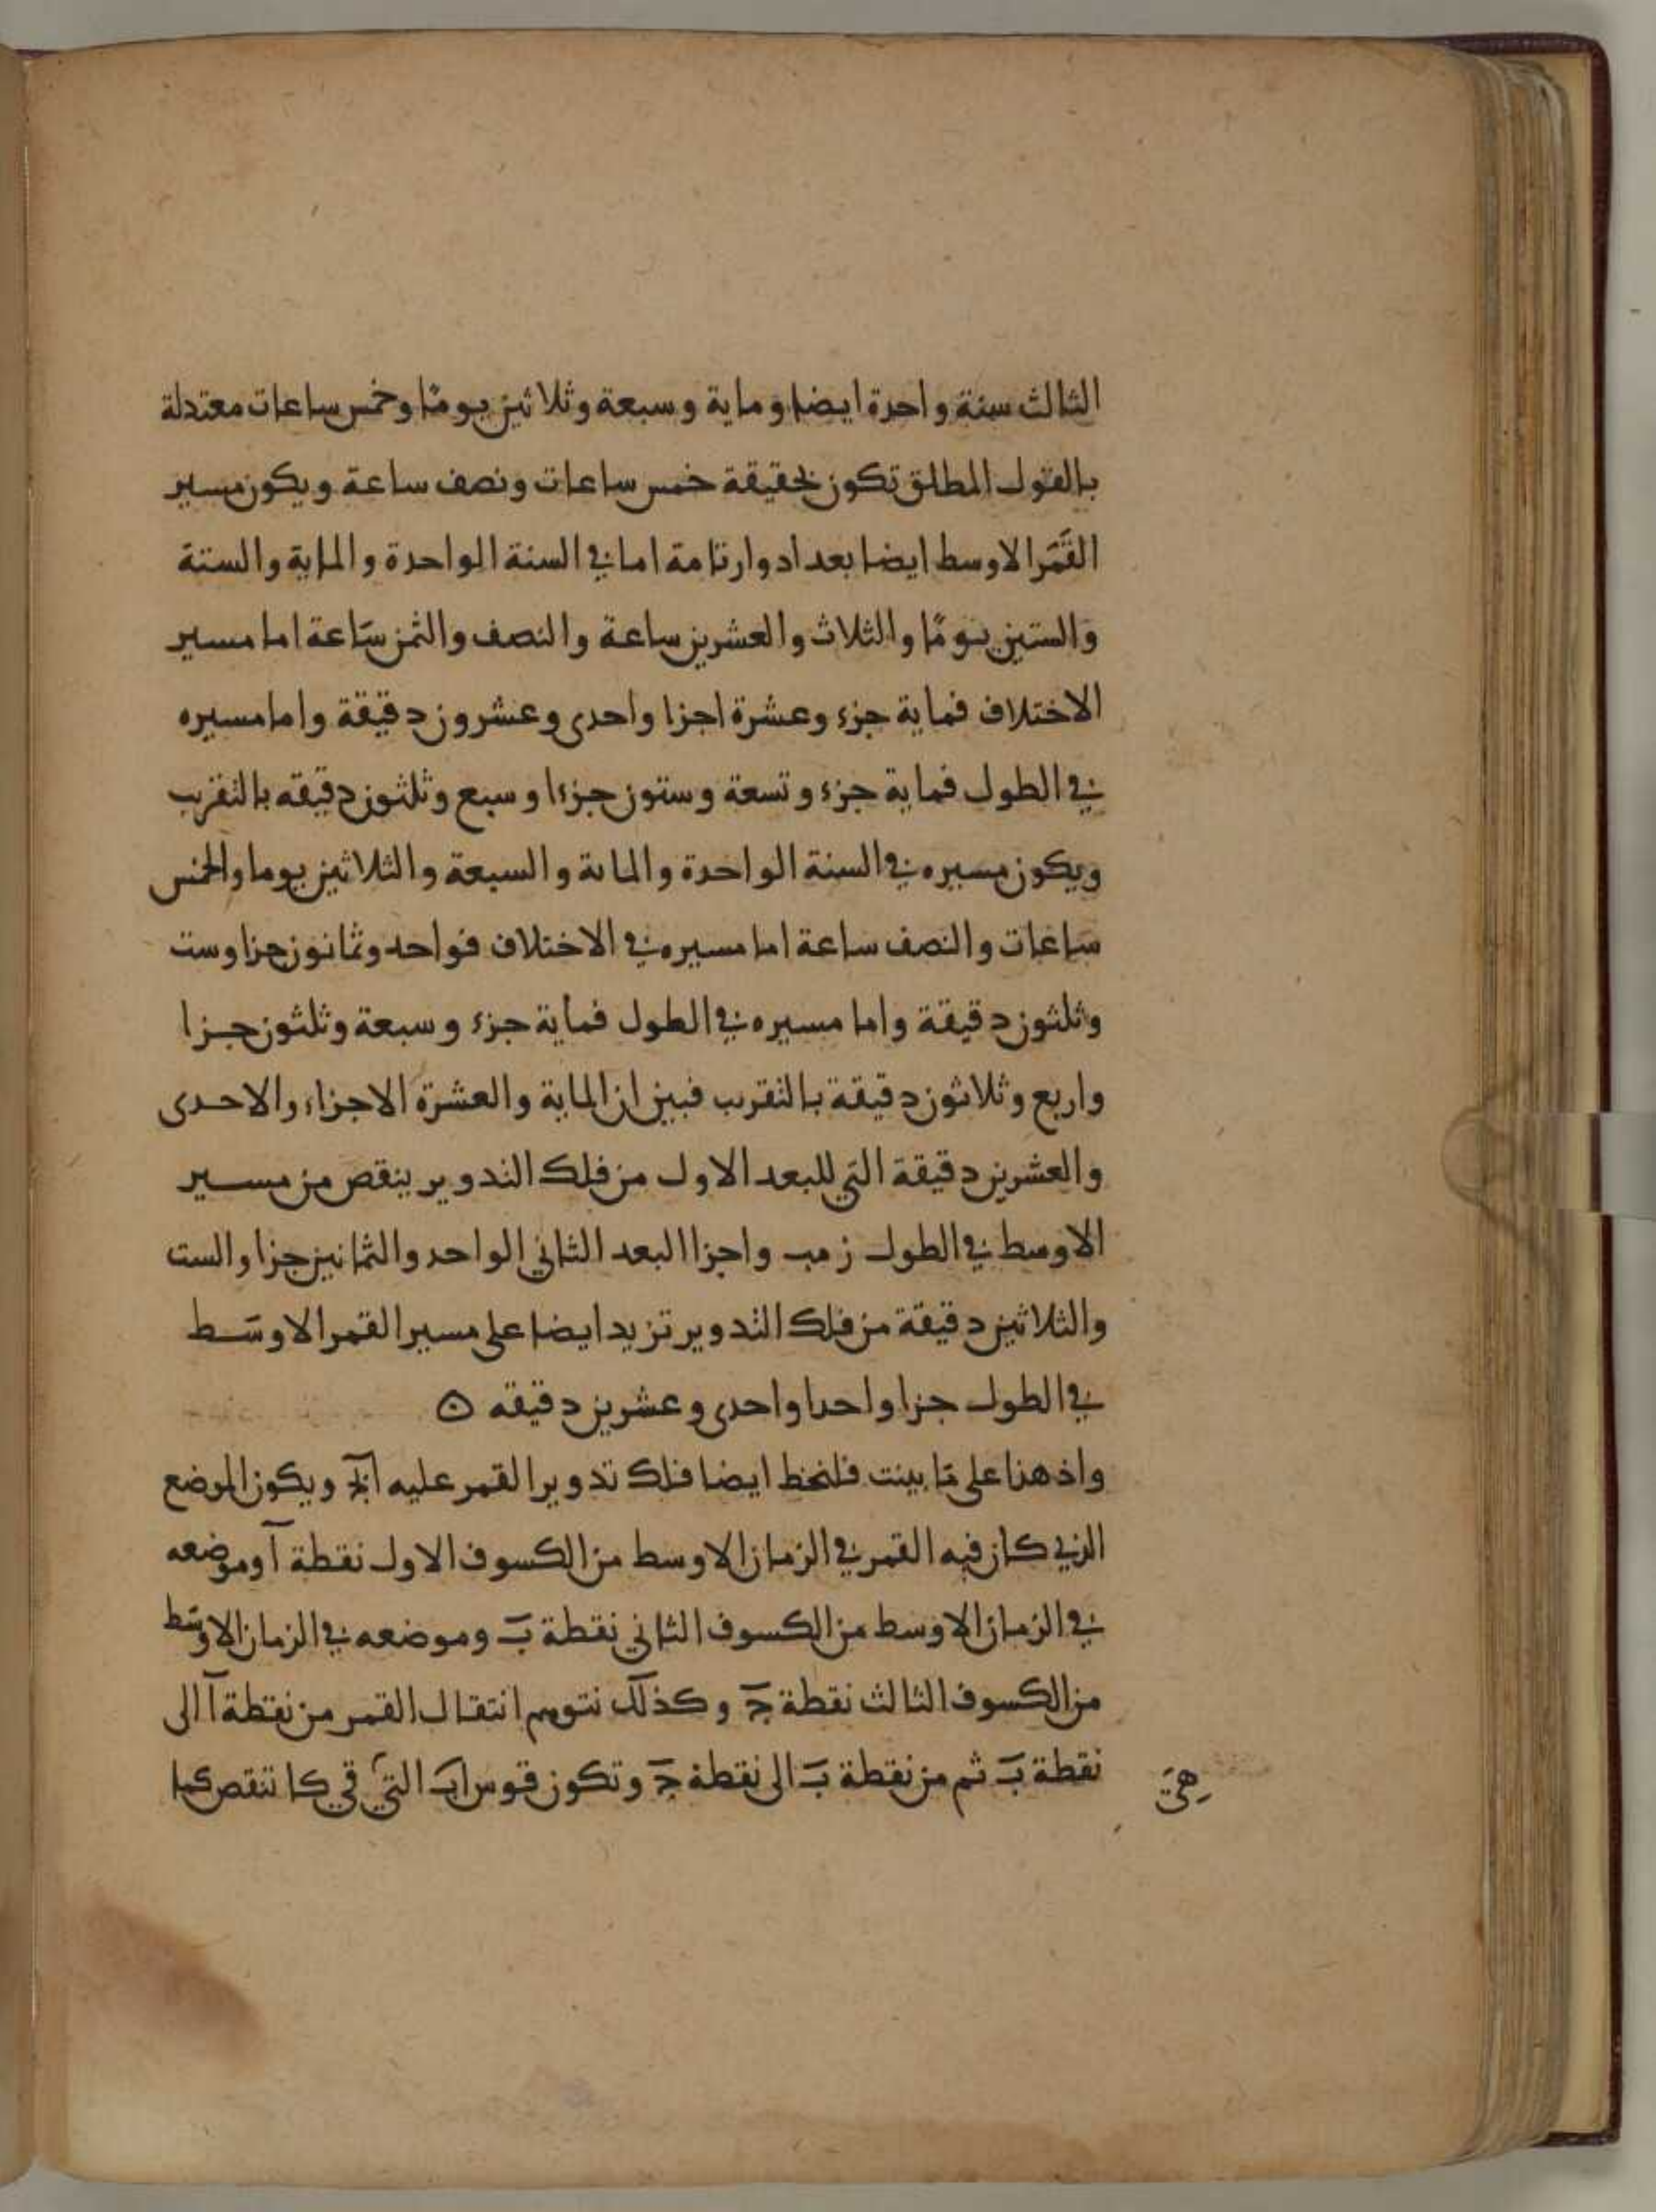 الثالث سنة واحدة ايضا وماية وسبعة وثلاثين يومًا وخمس ساعات معتدلة
بالقول المطلق تكون بحقيقة خمس ساعات ونصف ساعة ويكون مسير
القَمَر الاوسط ايضا بعد ادوار تامة اما في السنة الواحدة والماية والستة
والستين يومًا والثلاث والعشرين ساعة والنصف والثمن سَاعة اما مسير
الاختلاف فماية جزء وعشرة اجزا واحدى وعشرون دقيقة واما مسيره
في الطول فماية جزء وتسعة وستون جزءا وسبع وثلثون دقيقه بالتقريب
ويكون مسيره في السنة الواحدة والماىة والسبعة والثلاثين يوما والخمس
ساعات والنصف ساعة اما مسيره في الاختلاف فواحد وثمانون جزا وست
وثلثون دقيقة واما مسيره في الطول فماية جزء وسبعة وثلثون جزا
واربع وثلاثون دقيقة بالتقريب فبين ان الماية والعشرة الاجزاء والاحدى
والعشرين دقيقة التي للبعد الاول من فلك التدوير ينقص من مسير
الاوسط في الطول ز مب واجزا البعد الثاني الواحد والثمانين جزا والست
والثلاثين دقيقة من فلك التدوير تزيد ايضا على مسير القمر الاوسَط
في الطول جزا واحدا واحدى وعشرين دقيقه ۞
واذ هذا على مَا بينت فلنخط ايضا فلك تدوير القمر عليه ابج ويكون الموضع
الذي كان فيه القمر في الزمان الاوسط من الكسوف الاول نقطة آ وموضعه
في الزمان الاوسط من الكسوف الثاني نقطة بَ وموضعه في الزمان الاوسَط
من الكسوف الثالث نقطة جَ وكذلك نتوهم انتقال القمر من نقطة آ الى
نقطة بَ ثم من نقطة بَ الى نقطة جَ وتكون قوس اب التي قي كا تنقص كما
هِيَ